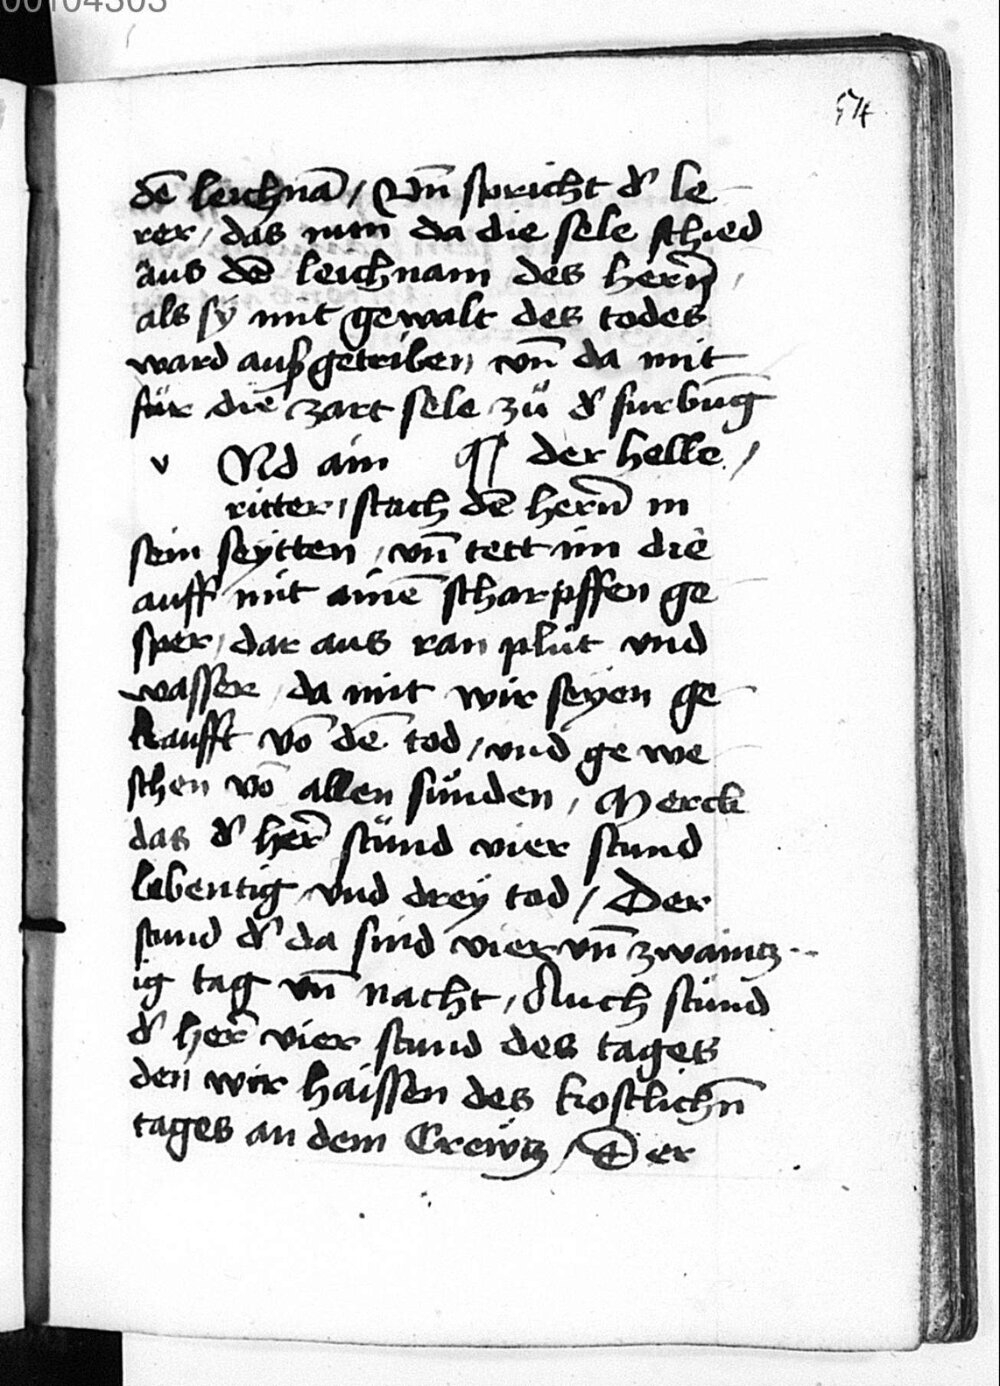 00104303
54
dē leichnā / Vn̄ spricht d' le
rer / das nun da die sele schied
aus dē leichnam des hern̄ /
als sÿ mit gewalt des todes
ward auß getriben vn̄ da mit
für die zart sele zů d' furbūg
v Nd ain ¶ der helle /
ritter / stach dē hern̄ in
sein seÿtten / vn̄ tett im die
auff mit ainē scharpffen ge
sper / dar aus ran plůt vnd
wasser / da mit wir seÿen ge
kaufft vō dē tod / vnd ge we
schen vō allen sünden / Merck
das d' her̄ stůnd vier stund
lebentig / vnd dreÿ tod / Der
stund d' da sind vier vn̄ zwaintz
ig tag vn̄ nacht / Auch stůnd
d' her̄ vier stund des tages
den wir haissen des kostlichn̄
tages an dem Crewtz / Der